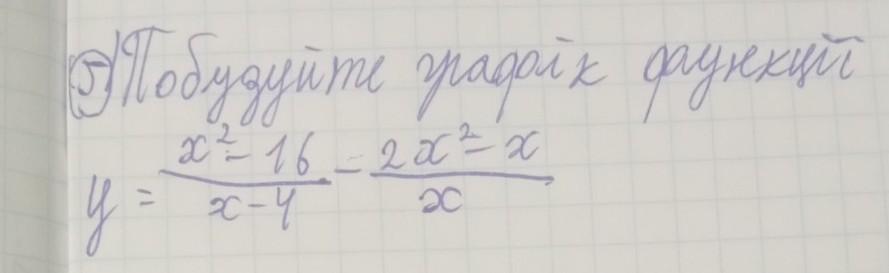 5) Побудуйте графік функції
y = \frac{x^2 - 16}{x - 4} - \frac{2x^2 - x}{x}